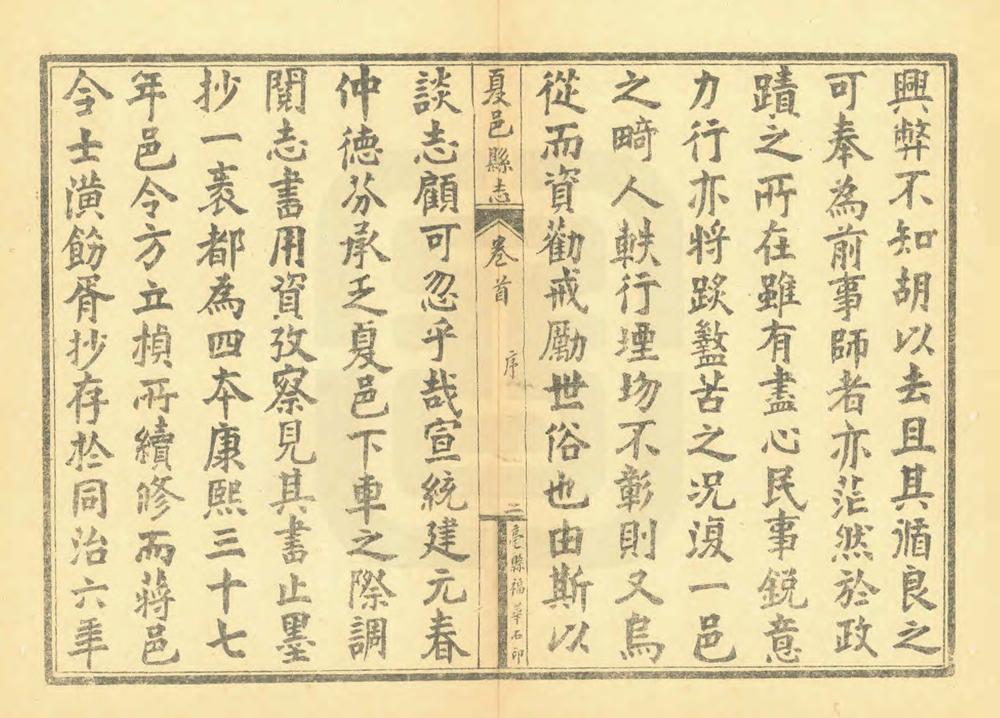 興弊不知胡以去且其循良之
可奉為前事師者亦茫然於政
蹟之所在雖有盡心民事銳意
力行亦將踐盭苦之况復一邑
之畸人軼行堙坳不彰則又烏
從而資勸戒勵世俗也由斯以
夏邑縣志
卷首
序
二
亳縣福華石印
談志顧可忽乎哉宣統建元春
仲德芬承乏夏邑下車之際調
閱志書用資攷察見其書止墨
抄一袠都為四本康熙三十七
年邑令方立楨所續修而蔣邑
令士潢飭胥抄存於同治六年